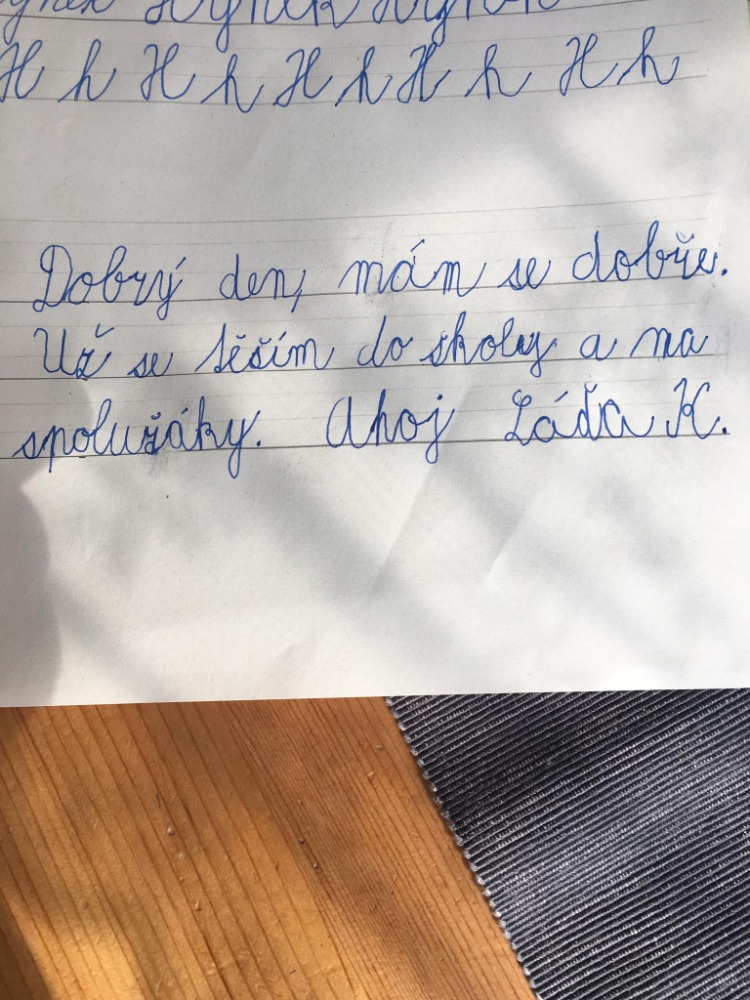 Hynek Hynek
H h H h H h H h H h
Dobrý den, mám se dobře.
Už se těším do školy a na
spolužáky. Ahoj Láďa K.